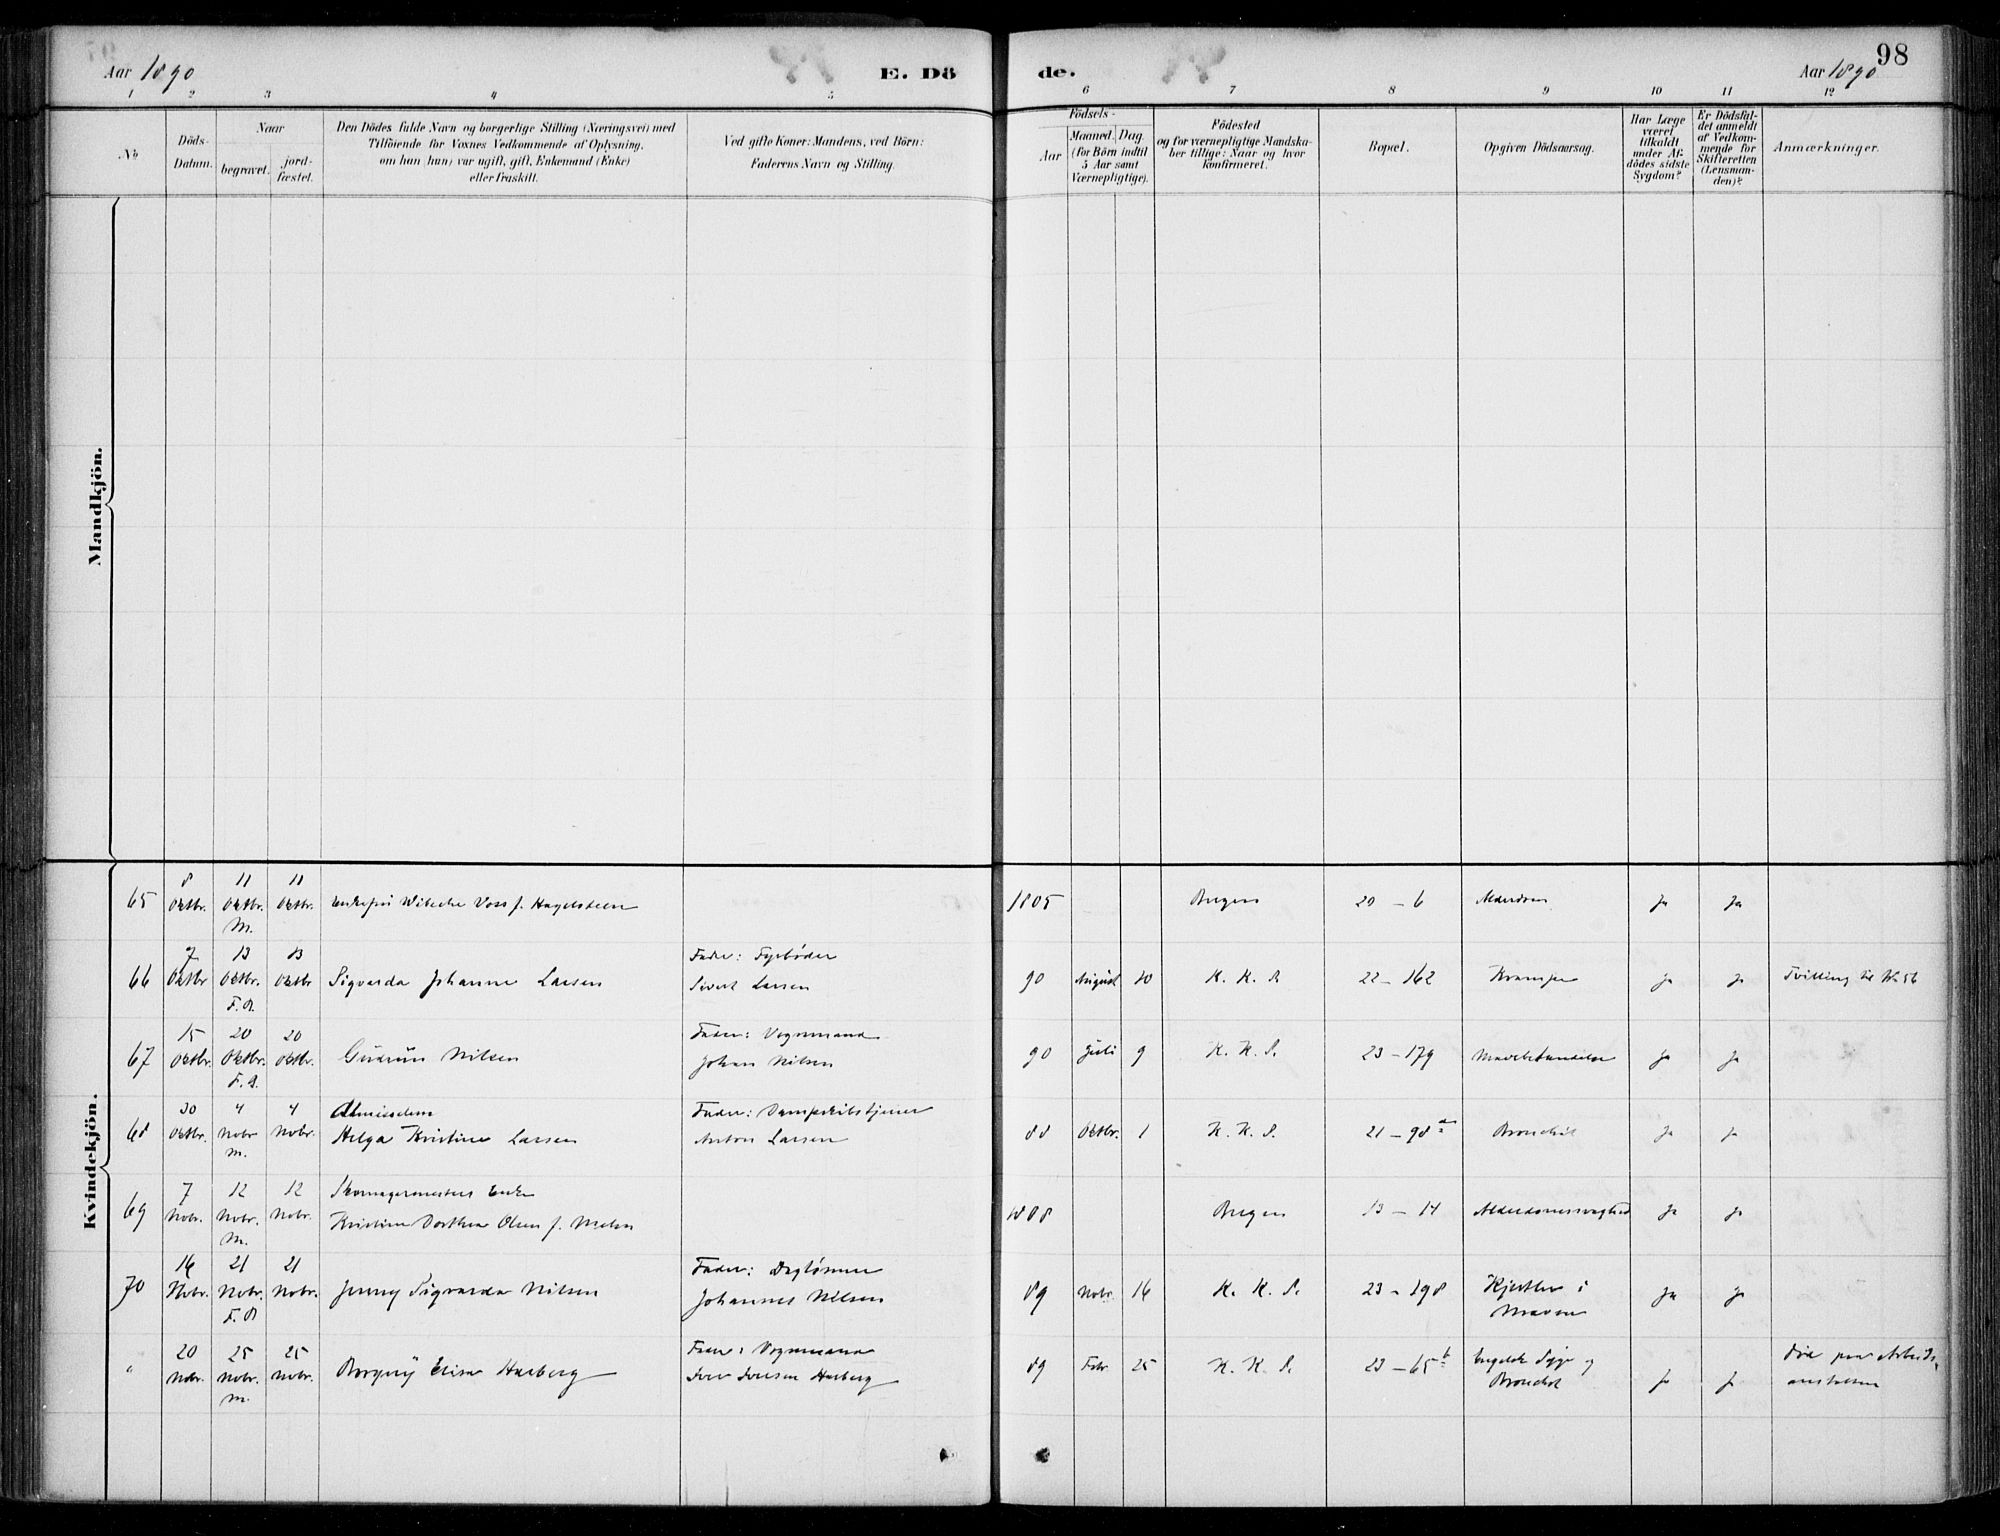 Aar 1890
E. Dö
de.
Aar 1890
98
1 2 3 4 5 6 7 8 9 10 11 12
No
Döds-
Datum.
Naar
begravet.
jord-
fæstet.
Den Dödes fulde Navn og borgerlige Stilling (Næringsvei) med
Tilföiende för Voxnes Vedkommende af Oplysning,
om han (hun) var ugift, gift, Enkemand (Enke)
eller fraskilt.
Ved gifte Koner: Mandens, ved Börn:
Faderens Navn og Stilling.
Födsels-
Aar
Maaned. Dag.
(for Börn indtil
5 Aar samt
Værnepligtige).
Födested
og for værnepligtige Mandska-
ber tillige: Naar og hvor
Konfirmeret.
Bopæl.
Opgiven Dödsaarsag.
Har Læge
været
tilkaldt
under Af-
dödes sidste
Sygdom?
Er Dödsfal-
det anmeldt
af Vedkom-
mende for
Skifteretten
(Lensman-
den)?
Anmærkninger.
Mandkjön.
Kvindekjön.
65
8 Oktbr.
11 Oktbr. M.
11 Oktbr.
Enkefru Wibecke Voss f. Hagelsteen
1805
Bergen
20 – 6
Alderdom
Ja
Ja
66
7 Oktbr
13 Oktbr.
13 Oktbr
Sigvarda Johanne Larsen
Fader: Fyrbøder
Sivert Larsen
90
August
10
K. K. S.
22 – 162
Krampe
Ja
Ja
Tvilling til No 56
67
15 Oktbr.
20 Oktbr.
20 Oktbr.
Gudrun Nilsen
Fader: Vognmand
Johan Nilsen
90
Juli
9
K. K. S.
23 – 179
Mavebetændelse
Ja
Ja
68
30 Oktbr.
4 Nobr M.
4 Nobr.
Almisselem
Helga Kristine Larsen
Fader: Dampskibstjener
Anton Larsen
88
Oktbr.
1
K. K. S.
21 – 98 a
Bronchit
Ja
Ja
69
7 Nobr.
12 Nobr. M.
12 Nobr.
Skomagermesters Enke
Kristine Dorthea Olsen f.
1808
Bergen
13 – 14
Alderdomssvaghed
Ja
Ja
70
16 Nobr.
21 Nobr.
21 Nobr.
Jenny Sigvarda Nilsen
Fader: Daglønner
Johannes Nilsen
89
Nobr
16
K. K. S.
23 – 198
Kjertler i
Maven
Ja
Ja
"
20 Nobr.
25 Nobr. M.
25 Nobr.
Borgny Elisa Hasberg
Fader: Vognmand
Iver Iversen Hasberg
89
Febr.
25
K. K. S.
23 – 65 b
Engelsk Syge og
Bronchit
Ja
Ja
Død paa Arbeids-
anstalten